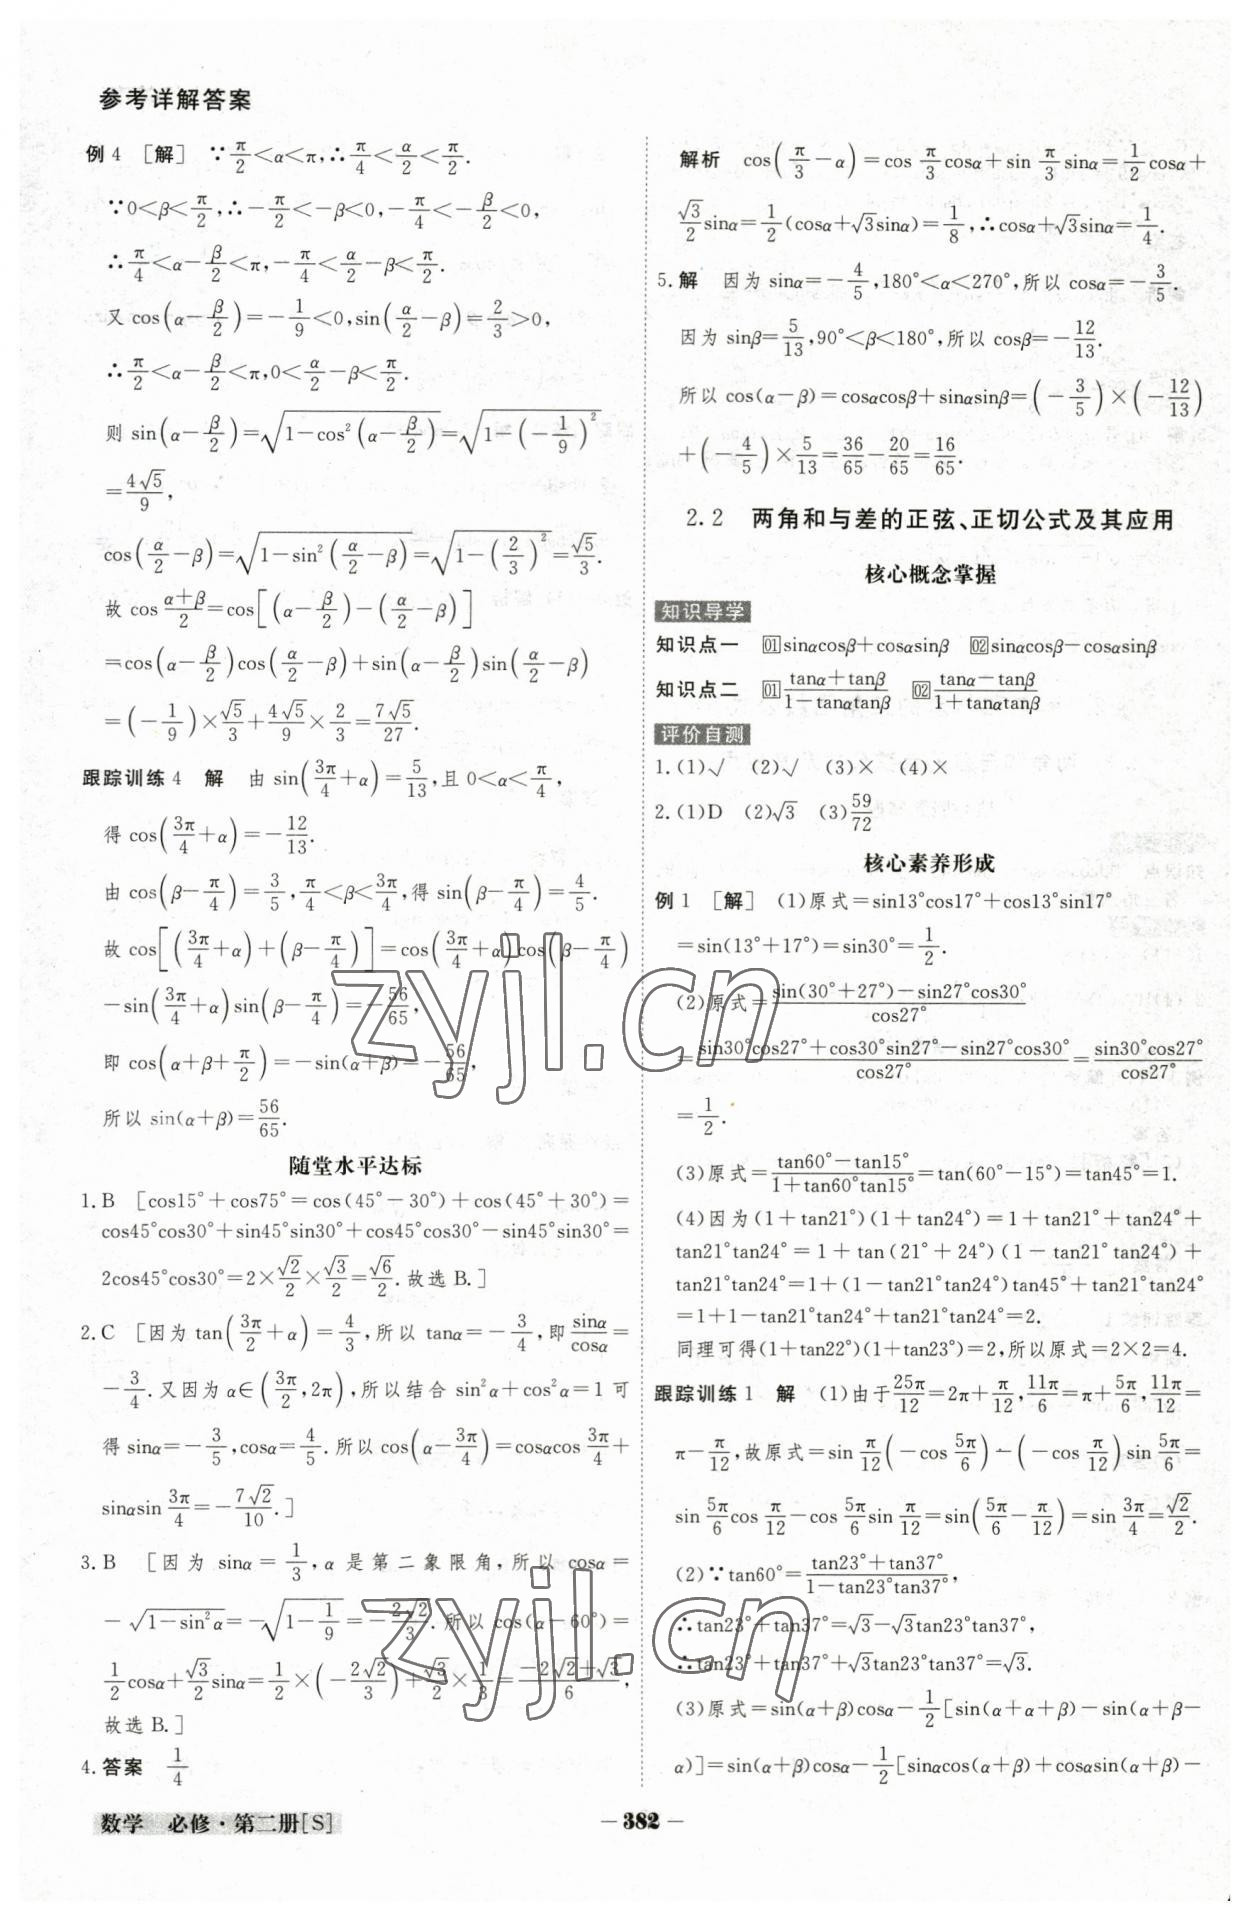 参考详解答案
例4 [解] ∵π/2<α<π,∴π/4<α/2<π/2.
∵0<β<π/2,∴-π/2<-β<0,-π/4<-β/2<0,
∴π/4<α-β/2<π,-π/4<α/2-β<π/2.
又 cos(α-β/2)=-1/9<0,sin(α/2-β)=2/3>0,
∴π/2<α-β/2<π,0<α/2-β<π/2.
则 sin(α-β/2)=√(1-cos²(α-β/2))=√(1-(-1/9)²)
=4√5/9,
cos(α/2-β)=√(1-sin²(α/2-β))=√(1-(2/3)²)=√5/3.
故 cos (α+β)/2=cos[(α-β/2)-(α/2-β)]
=cos(α-β/2)cos(α/2-β)+sin(α-β/2)sin(α/2-β)
=(-1/9)×√5/3+4√5/9×2/3=7√5/27.
跟踪训练4 解 由 sin(3π/4+α)=5/13,且 0<α<π/4,
得 cos(3π/4+α)=-12/13.
由 cos(β-π/4)=3/5,π/4<β<3π/4,得 sin(β-π/4)=4/5.
故 cos[(3π/4+α)+(β-π/4)]=cos(3π/4+α)cos(β-π/4)
-sin(3π/4+α)sin(β-π/4)=-56/65,
即 cos(α+β+π/2)=-sin(α+β)=-56/65,
所以 sin(α+β)=56/65.
随堂水平达标
1.B [cos15°+cos75°=cos(45°-30°)+cos(45°+30°)=
cos45°cos30°+sin45°sin30°+cos45°cos30°-sin45°sin30°=
2cos45°cos30°=2×√2/2×√3/2=√6/2.故选 B.]
2.C [因为 tan(3π/2+α)=4/3,所以 tanα=-3/4,即 sinα/cosα=
-3/4.又因为 α∈(3π/2,2π),所以结合 sin²α+cos²α=1 可
得 sinα=-3/5,cosα=4/5.所以 cos(α-3π/4)=cosαcos 3π/4+
sinαsin 3π/4=-7√2/10.]
3.B [因为 sinα=1/3,α 是第二象限角,所以 cosα=
-√(1-sin²α)=-√(1-1/9)=-2√2/3.所以 cos(α-60°)=
1/2cosα+√3/2sinα=1/2×(-2√2/3)+√3/2×1/3=(-2√2+√3)/6,
故选 B.]
4.答案 1/4
解析 cos(π/3-α)=cos π/3 cosα+sin π/3 sinα=1/2cosα+
√3/2sinα=1/2(cosα+√3sinα)=1/8,∴cosα+√3sinα=1/4.
5.解 因为 sinα=-4/5,180°<α<270°,所以 cosα=-3/5.
因为 sinβ=5/13,90°<β<180°,所以 cosβ=-12/13.
所以 cos(α-β)=cosαcosβ+sinαsinβ=(-3/5)×(-12/13)
+(-4/5)×5/13=36/65-20/65=16/65.
2.2 两角和与差的正弦、正切公式及其应用
核心概念掌握
知识导学
知识点一 01 sinαcosβ+cosαsinβ 02 sinαcosβ-cosαsinβ
知识点二 01 (tanα+tanβ)/(1-tanαtanβ) 02 (tanα-tanβ)/(1+tanαtanβ)
评价自测
1.(1)√ (2)√ (3)× (4)×
2.(1)D (2)√3 (3)59/72
核心素养形成
例1 [解] (1)原式=sin13°cos17°+cos13°sin17°
=sin(13°+17°)=sin30°=1/2.
(2)原式=(sin(30°+27°)-sin27°cos30°)/cos27°
=(sin30°cos27°+cos30°sin27°-sin27°cos30°)/cos27°=sin30°cos27°/cos27°
=1/2.
(3)原式=(tan60°-tan15°)/(1+tan60°tan15°)=tan(60°-15°)=tan45°=1.
(4)因为(1+tan21°)(1+tan24°)=1+tan21°+tan24°+
tan21°tan24°=1+tan(21°+24°)(1-tan21°tan24°)+
tan21°tan24°=1+(1-tan21°tan24°)tan45°+tan21°tan24°
=1+1-tan21°tan24°+tan21°tan24°=2.
同理可得(1+tan22°)(1+tan23°)=2,所以原式=2×2=4.
跟踪训练1 解 (1)由于25π/12=2π+π/12,11π/6=π+5π/6,11π/12=
π-π/12,故原式=sin π/12(-cos 5π/6)-(-cos π/12)sin 5π/6=
sin 5π/6 cos π/12-cos 5π/6 sin π/12=sin(5π/6-π/12)=sin 3π/4=√2/2.
(2)∵tan60°=(tan23°+tan37°)/(1-tan23°tan37°),
∴tan23°+tan37°=√3-√3tan23°tan37°,
∴tan23°+tan37°+√3tan23°tan37°=√3.
(3)原式=sin(α+β)cosα-1/2[sin(α+α+β)-sin(α+β-
α)]=sin(α+β)cosα-1/2[sinαcos(α+β)+cosαsin(α+β)-
数学 必修·第二册[S]
- 382 -
zyjl.cn
zyjl.cn